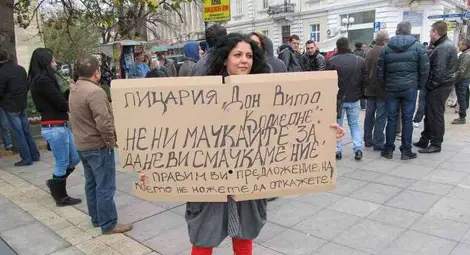 ПИЦАРИЯ "Дон Вито
Корлеоне"
НЕ НИ МАЧКАЙТЕ ЗА
ДА НЕ ВИ СМАЧКАМЕ НИЕ.
ПРАВИМ ВИ ПРЕДЛОЖЕНИЕ, НА
КОЕТО НЕ МОЖЕТЕ ДА ОТКАЖЕТЕ!